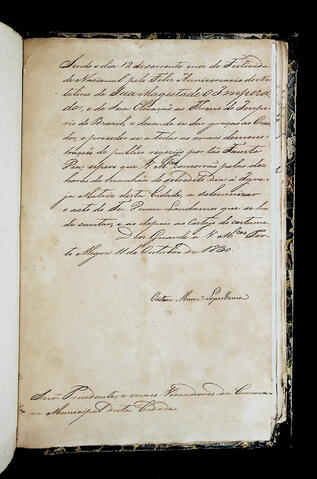 Sendo o dia 12 do corrente mez de Festivida-
de Nacional pelo Feliz Anniversario do Na-
talicio de Sua Magestade O Impera-
dor, e de Sua Elevação ao Throno do Imperi-
o do Brasil, e devendo-se dar graças ao Crea-
dor, e proceder-se a todas as mais demons-
trações de publico regosijo por tão Fausto
Dia; espero que V. Mces concorrão pelas dez
horas da manhãa do sobredito dia á Igre-
ja Matriz desta Cidade, a solemnizar
o acto do Te Deum Laudamus que se ha
de cantar, e ao depois ao Cortejo do costume.
Deos Guarde a V. Mces Por-
to Alegre 11 de Outubro de 1830.
Caetano Maria Lopes Gama
Snrs. Prezidente, e mais Vereadores da Cama-
ra Municipal desta Cidade